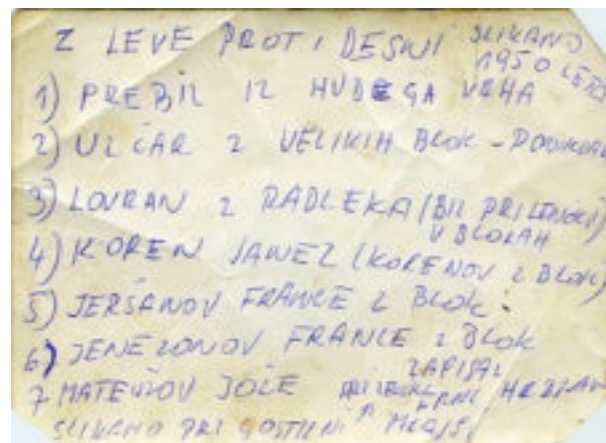 Z LEVE PROTI DESNI SLIKANO
1950 LETA
1) PREBIL IZ HUDEGA VRHA
2) UZČAR Z VELIKIH BLOK -
3) LOVRAN Z RADLEKA (BIL PRI
V BLOKAH
4) KOREN JANEZ (KORENOV Z BLOK)
5) JERŠANOV FRANCE Z BLOK
6) JENEZONOV FRANCE Z BLOK
ZAPISAL
7 MATEVŽOV JOŽE
SLIKANO PRI GOSTILNI